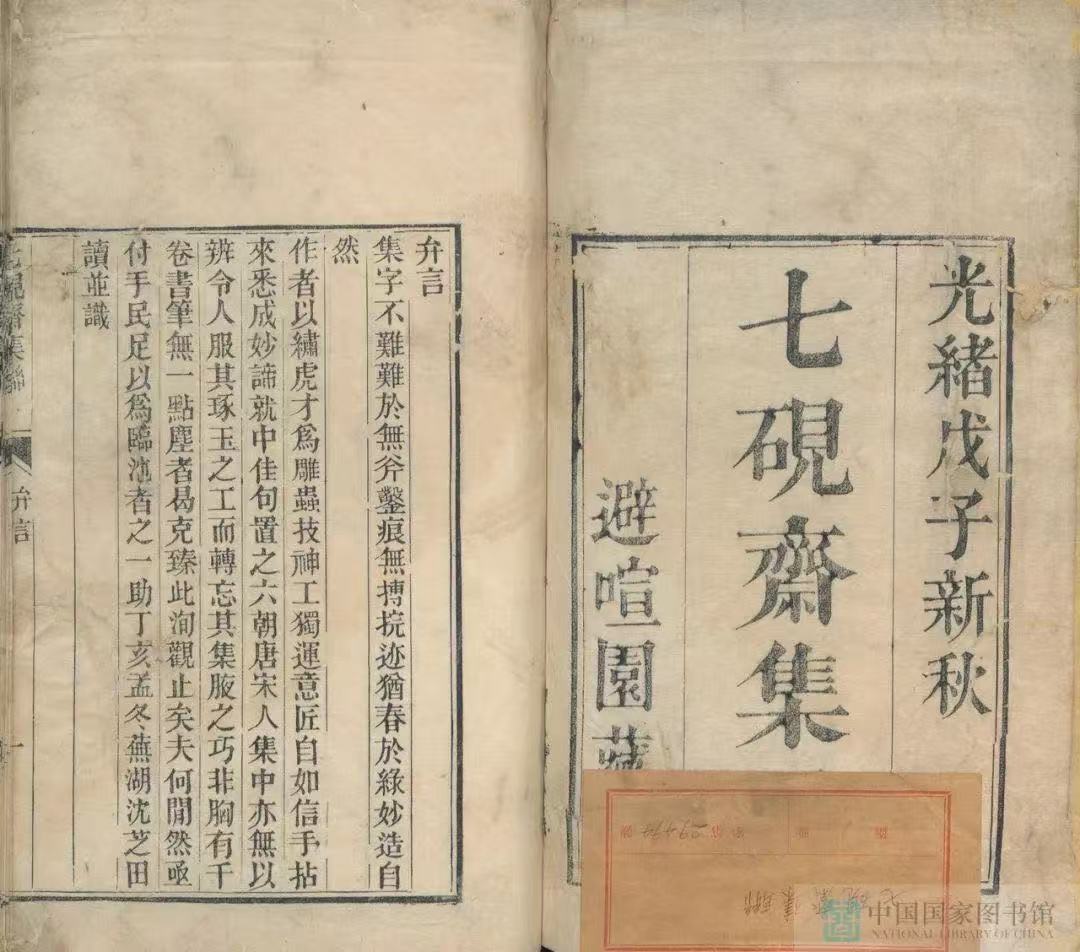 光緒戊子新秋
七硯齋集
避喧園藏
弁言
集字不難難於無斧鑿痕無摶捖迹猶春於綠妙造自
然
作者以繡虎才為雕蟲技神工獨運意匠自如信手拈
來悉成妙諦就中佳句置之六朝唐宋人集中亦無以
辨令人服其琢玉之工而轉忘其集腋之巧非胸有千
卷書筆無一點塵者曷克臻此洵觀止矣夫何閒然亟
付手民足以為臨池者之一助丁亥孟冬蕪湖沈芝田
讀並識
七硯齋集聯
弁言
一
29474
七硯齋集聯
中国国家图书馆
NATIONAL LIBRARY OF CHINA